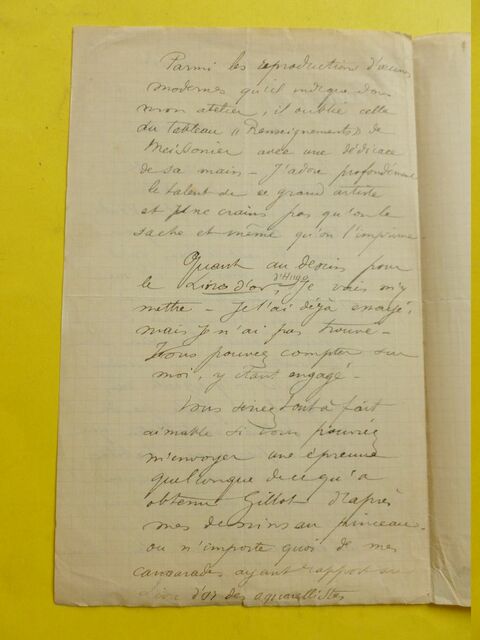 Parmi les reproduction d'œuvres
modernes qu'il indique dans
mon atelier, il oublie celle
du tableau "Renseignements" de
Meissonier avec une dédicace
de sa main - J'adore profondément
le talent de ce grand artiste
et je ne crains pas qu'on le
sache et même qu'on l'imprime
Quant au dessin pour
le Livre d'or d'Hugo, je vais m'y
mettre - Je l'ai déjà essayé,
mais je n'ai pas trouvé -
Vous pouvez compter sur
moi, y étant engagé -
Vous seriez tout à fait
aimable si vous pouviez
m'envoyer une épreuve
quelconque de ce qu'a
obtenu Gillot d'après
mes dessins au pinceau -
ou n'importe quoi de mes
camarades ayant rapport au
Livre d'or des aquarellistes